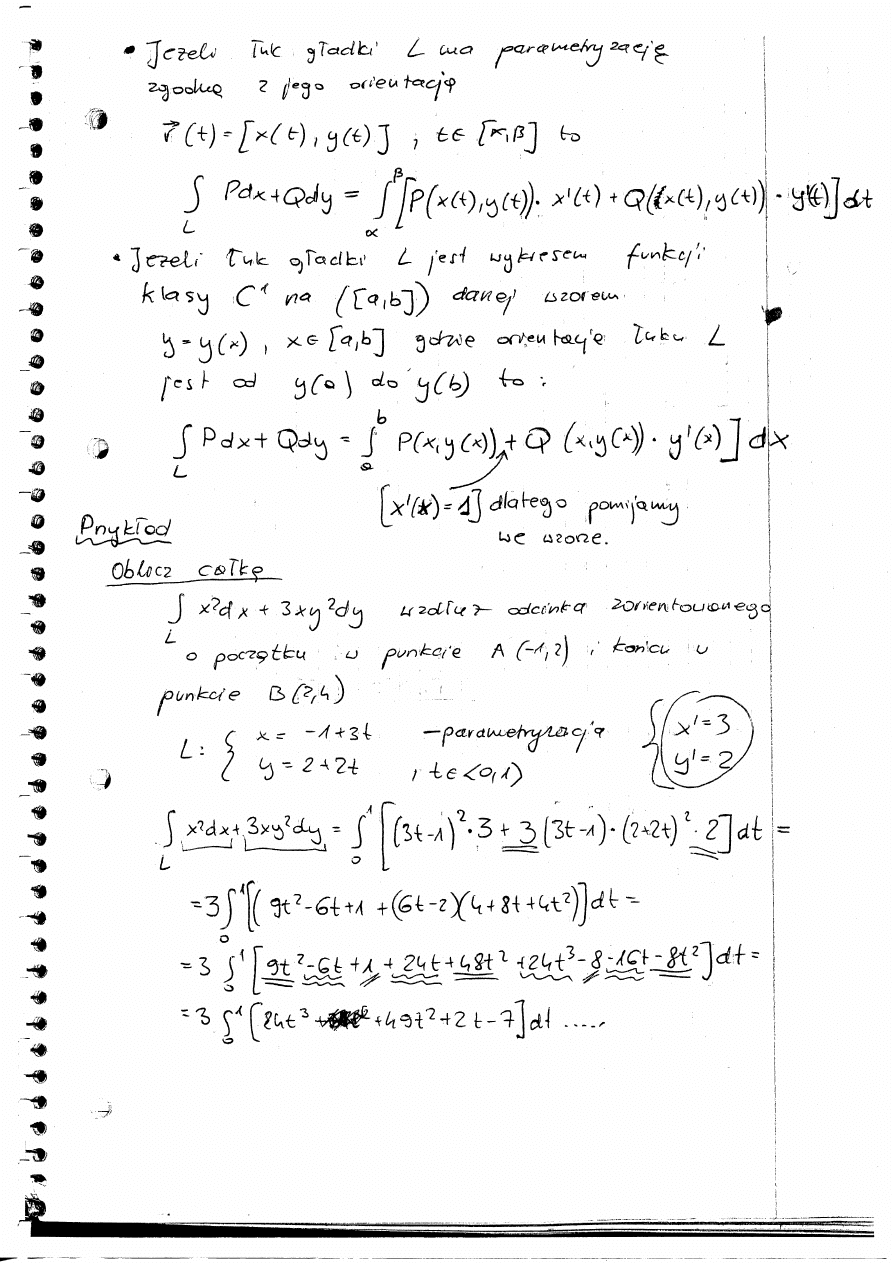 • Jeżeli łuk gładki L ma parametryzację
zgodną z jego orientacją
r⃗(t) = [x(t), y(t)] , t∈ [α,β] to
∫_L Pdx+Qdy = ∫_α^β [P(x(t),y(t))· x'(t) + Q(x(t),y(t)) · y'(t)]dt
• Jeżeli łuk gładki L jest wykresem funkcji
klasy C¹ na ([a,b]) danej wzorem
y=y(x) , x∈[a,b] gdzie orientacja łuku L
jest od y(a) do y(b) to :
∫_L Pdx+Qdy = ∫_a^b P(x,y(x)) + Q (x,y(x))· y'(x)] dx
[x'(x)=1] dlatego pomijamy
we wzorze.
Przykład
Oblicz całkę
∫_L x²dx + 3xy²dy wzdłuż odcinka zorientowanego
o początku w punkcie A (-1,2) i końcu w
punkcie B(2,4)
L: { x = -1+3t - parametryzacja { x'=3
y = 2+2t , t∈<0,1) y'=2
∫_L x²dx+3xy²dy = ∫_0^1 [(3t-1)²·3 + 3(3t-1)·(2+2t)²·2]dt =
=3∫_0^1 [( 9t²-6t+1 +(6t-2)(4+8t+4t²)]dt =
=3 ∫_0^1 [9t²-6t+1+24t+48t²+24t³-8-16t-8t²]dt=
=3 ∫_0^1 [24t³ +49t²+2t-7]dt .....